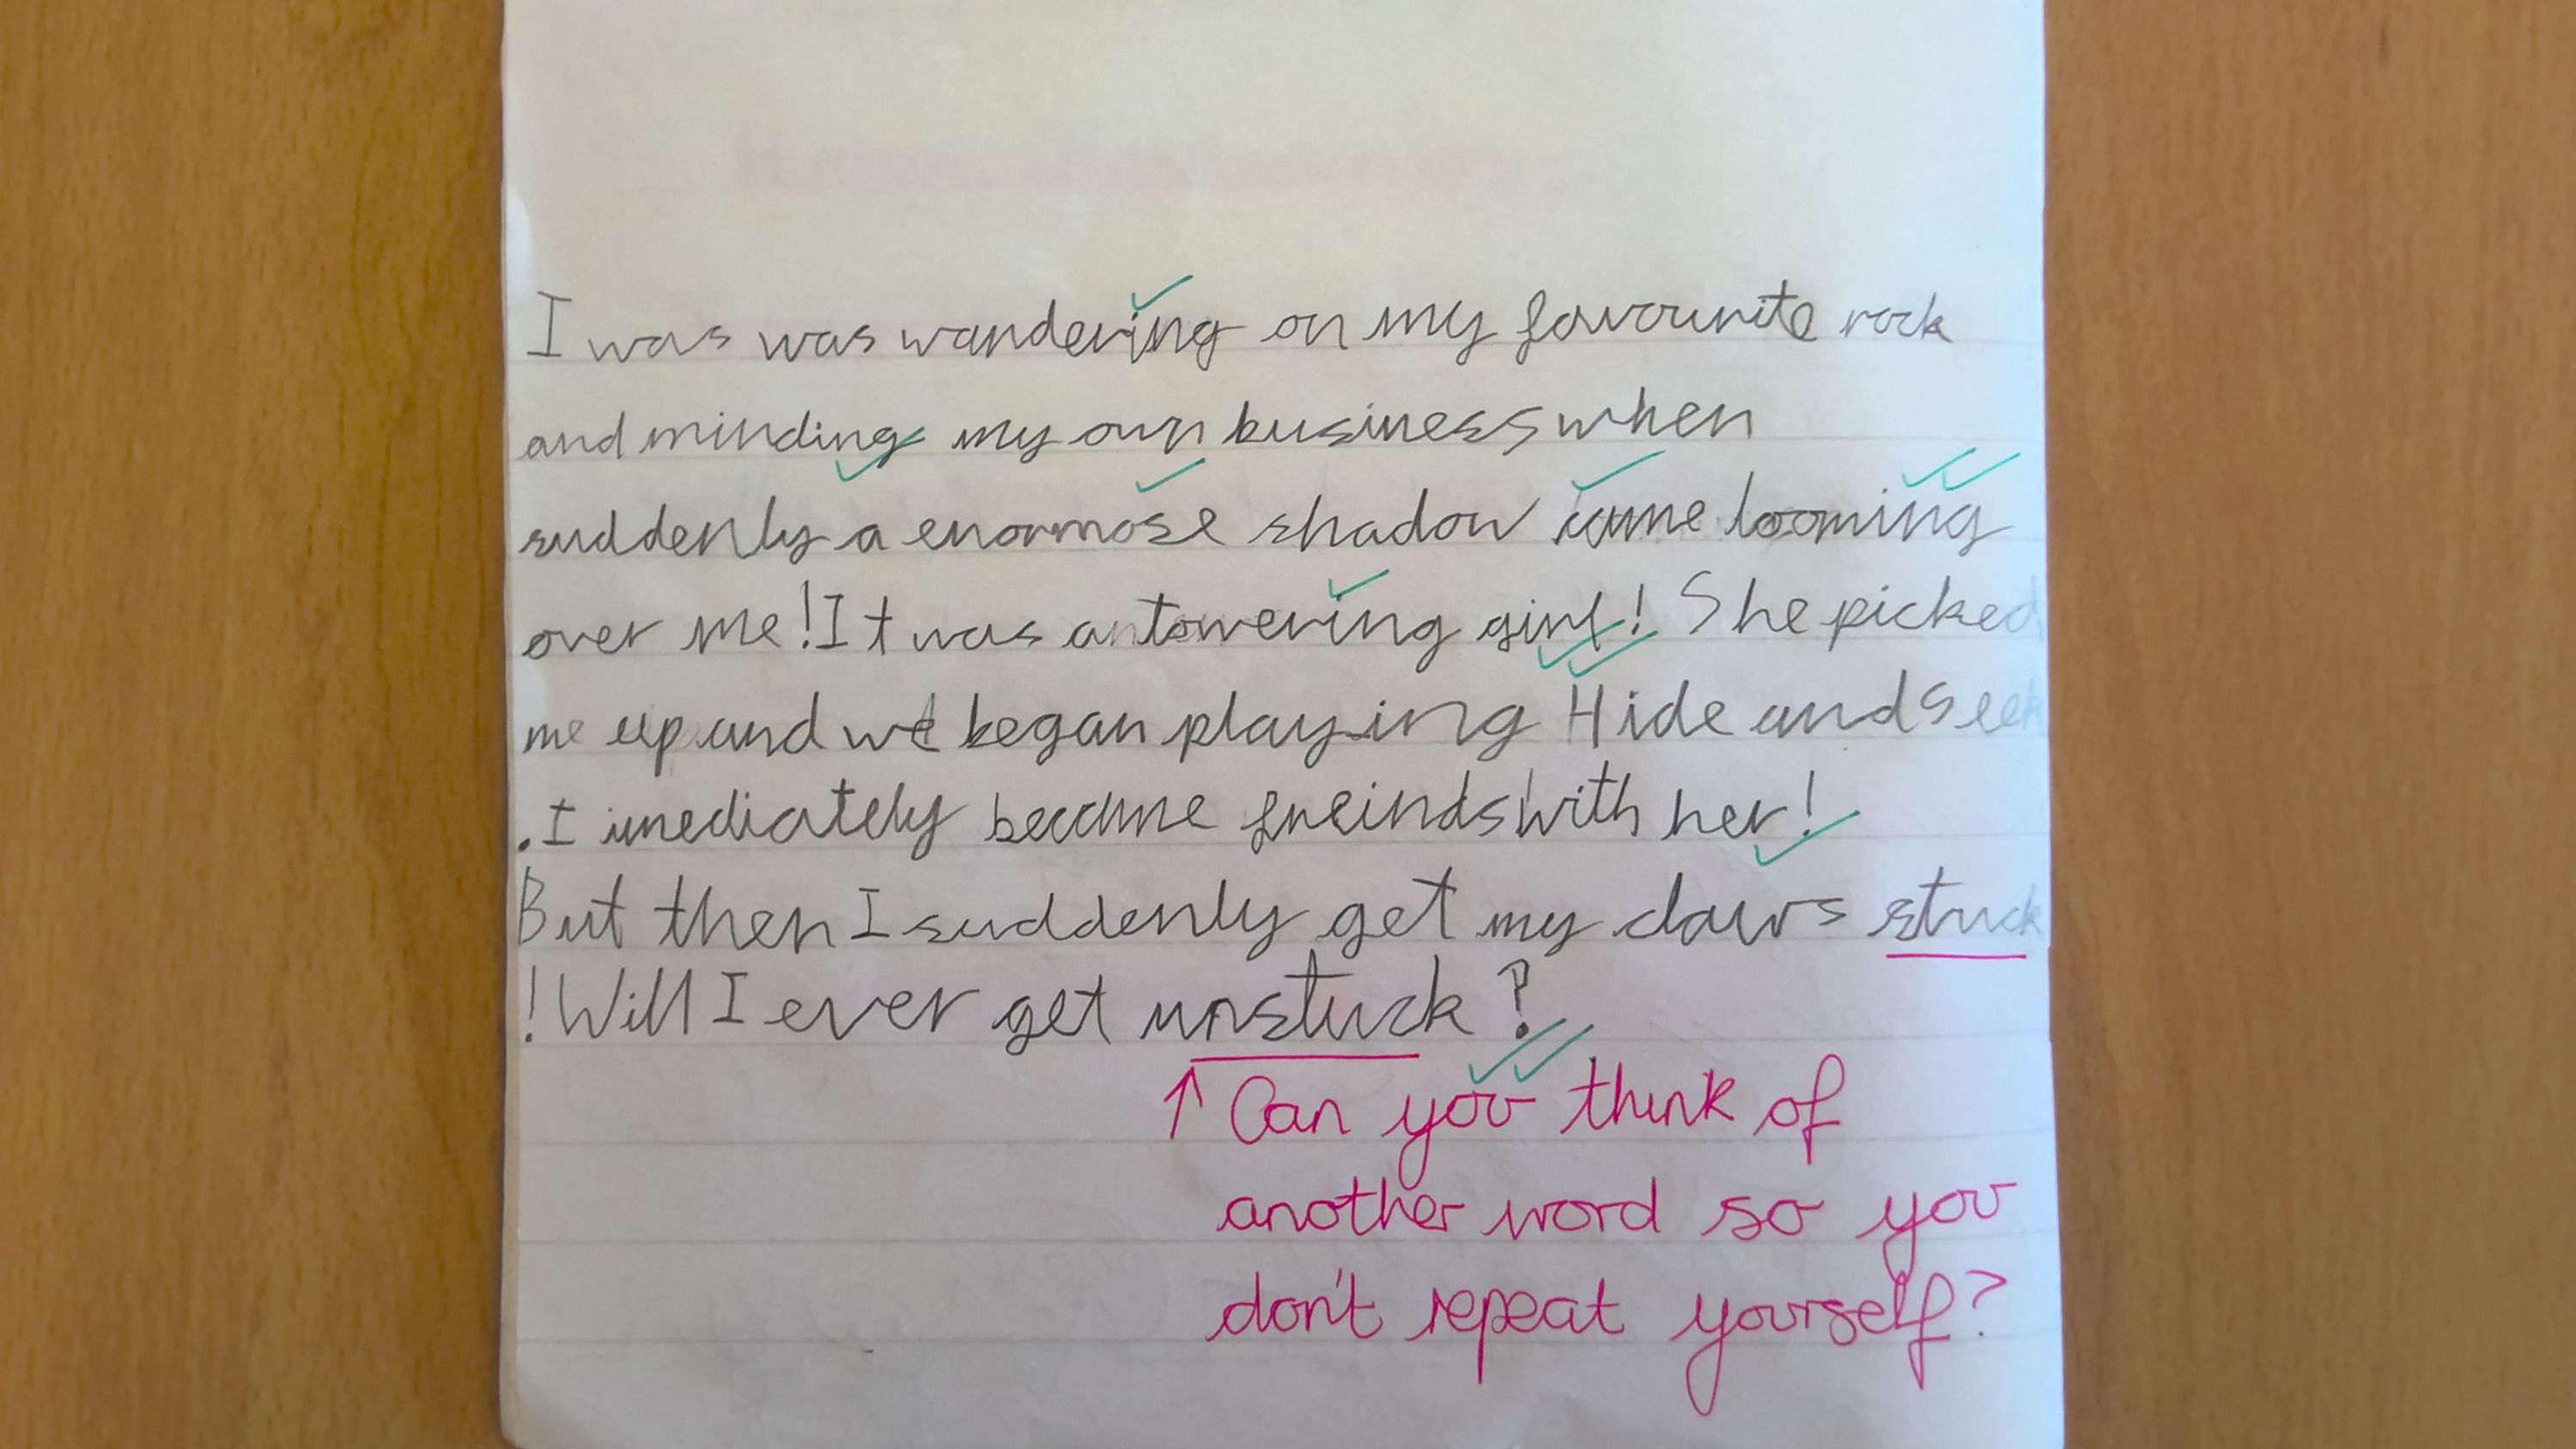 I was was wandering on my favourite rock
and minding my own business when
suddenly a enormose shadow came looming
over me! It was an towering girl! She picked
me up and we began playing Hide and Seek
. I imediately became freinds with her!
But then I suddenly get my claws stuck
! Will I ever get unstuck?
↑ Can you think of
another word so you
don't repeat yourself?